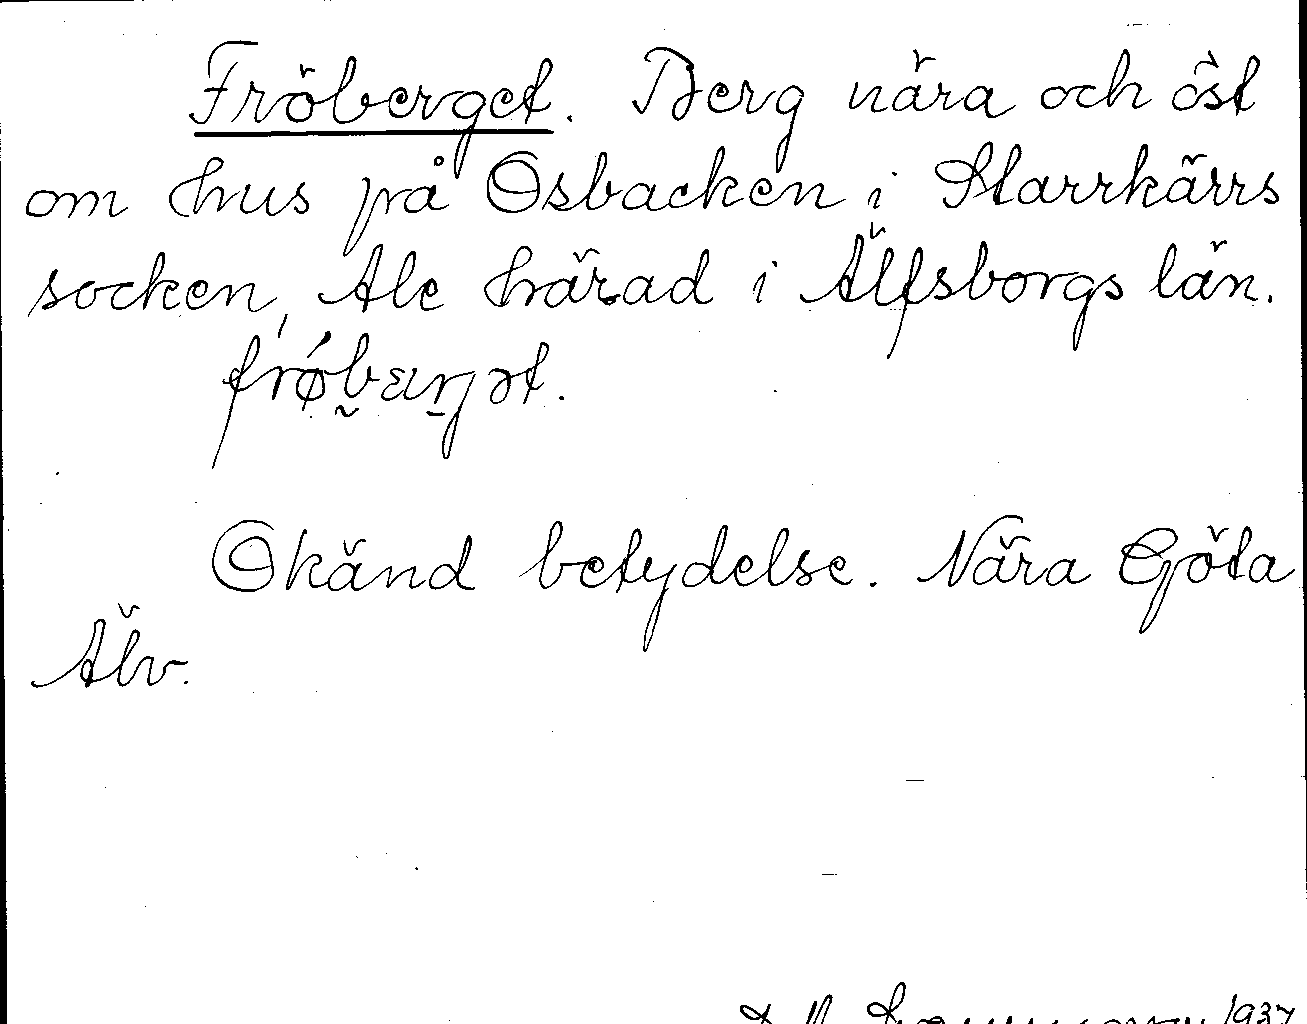 Fröberget. Berg nära och öst
om hus på Osbacken i Starrkärrs
socken, Ale härad i Älfsborgs län.
frǿbærjət.
Okänd betydelse. Nära Göta
Älv.
1937